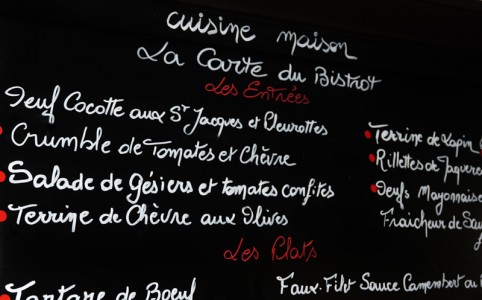 cuisine maison
La Carte du Bistrot
Les Entrées
Oeuf Cocotte aux St Jacques et Pleurottes
Crumble de Tomates et Chèvre
Salade de Gésiers et tomates confites
Terrine de Chèvre aux Olives
Terrine de Lapin
Rillettes de
Oeufs Mayonnaise
Fraicheur de
Les Plats
Tartare de Boeuf
Faux-Filet Sauce Camembert au